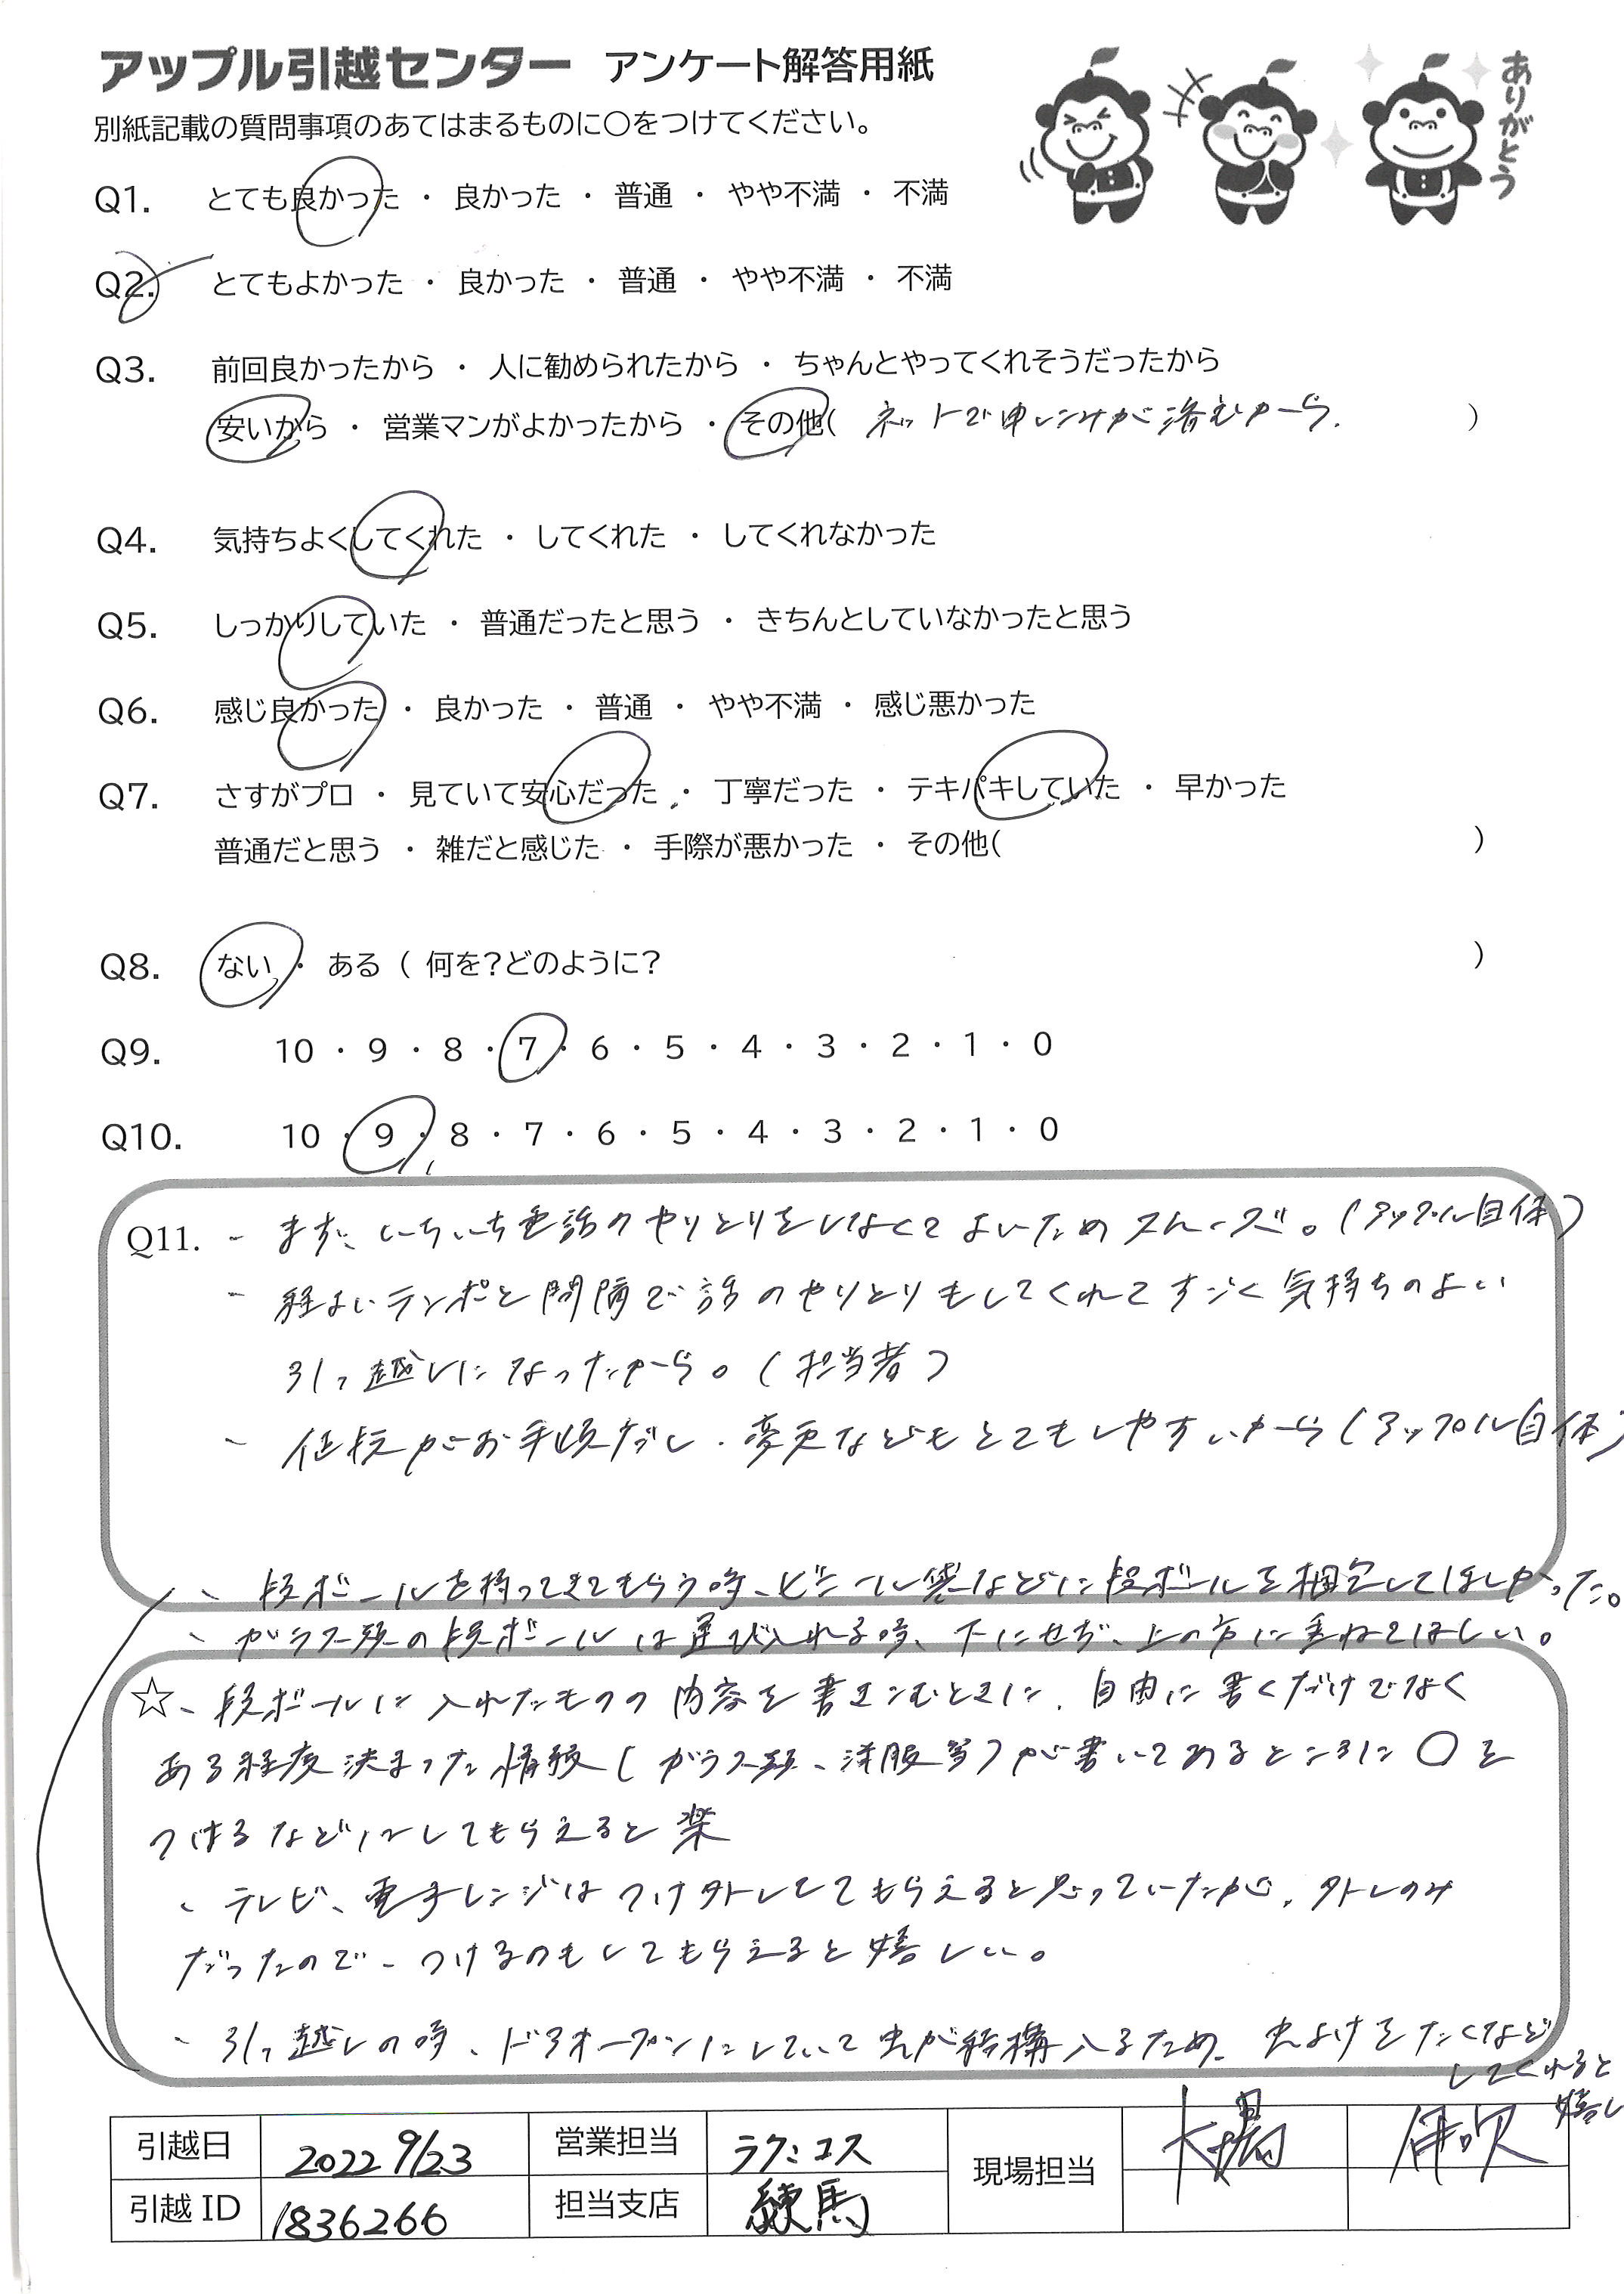 アップル引越センター アンケート解答用紙
ありがとう
別紙記載の質問事項のあてはまるものに○をつけてください。
Q1. とても良かった ・ 良かった ・ 普通 ・ やや不満 ・ 不満
Q2. とてもよかった ・ 良かった ・ 普通 ・ やや不満 ・ 不満
Q3. 前回良かったから ・ 人に勧められたから ・ ちゃんとやってくれそうだったから
安いから ・ 営業マンがよかったから ・ その他( ネットで申しこみが済むから. )
Q4. 気持ちよくしてくれた ・ してくれた ・ してくれなかった
Q5. しっかりしていた ・ 普通だったと思う ・ きちんとしていなかったと思う
Q6. 感じ良かった ・ 良かった ・ 普通 ・ やや不満 ・ 感じ悪かった
Q7. さすがプロ ・ 見ていて安心だった ・ 丁寧だった ・ テキパキしていた ・ 早かった
普通だと思う ・ 雑だと感じた ・ 手際が悪かった ・ その他( )
Q8. ない ・ ある ( 何を?どのように? )
Q9. 10 ・ 9 ・ 8 ・ 7 ・ 6 ・ 5 ・ 4 ・ 3 ・ 2 ・ 1 ・ 0
Q10. 10 ・ 9 ・ 8 ・ 7 ・ 6 ・ 5 ・ 4 ・ 3 ・ 2 ・ 1 ・ 0
Q11. - まず、いちいち電話のやりとりをしなくてよいためスムーズ。(アップル自体)
- 程よいテンポと間隔で話のやりとりもしてくれてすごく気持ちのよい
引っ越しになったから。(担当者)
- 値段がお手頃だし、変更などもとてもしやすいから(アップル自体)
、段ボールを持ってきてもらう時、ビニール袋などに段ボールを梱包してほしかった。
、ガラス類の段ボールは運び入れる時、下にせず、上の方に重ねてほしい。
☆、段ボールに入れたものの内容を書きこむときに、自由に書くだけでなく
ある程度決まった情報(ガラス類、洋服等)が書いてあるところに○を
つけるなどにしてもらえると楽
、テレビ、電子レンジはつけ外ししてもらえると思っていたが、外しのみ
だったので、つけるのもしてもらえると嬉しい。
、引っ越しの時、ドアオープンにしていて虫が結構入るため、虫よけをたくなど
してくれると
嬉し
引越日 2022 9/23 営業担当 ラクニコス 現場担当 大場 伊吹
引越 ID 1836266 担当支店 練馬